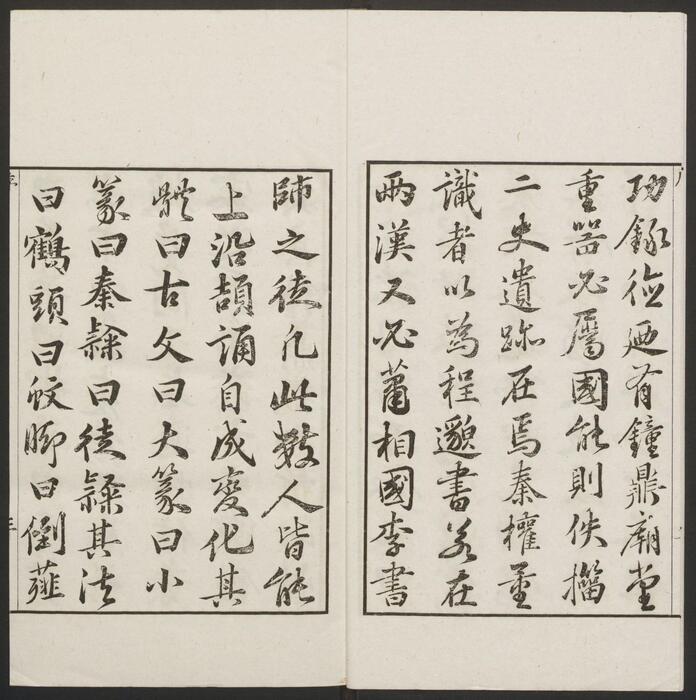 功錄德廼有鐘鼎廟堂
重器必屬國能則佚籀
二史遺跡在焉秦權量
識者以為程邈書若在
兩漢又必蕭相國李書
師之徒凡此數人皆能
上沿頡誦自成變化其
體曰古文曰大篆曰小
篆曰秦隸曰徒隸其法
曰鶴頭曰蚊腳曰倒薤
三